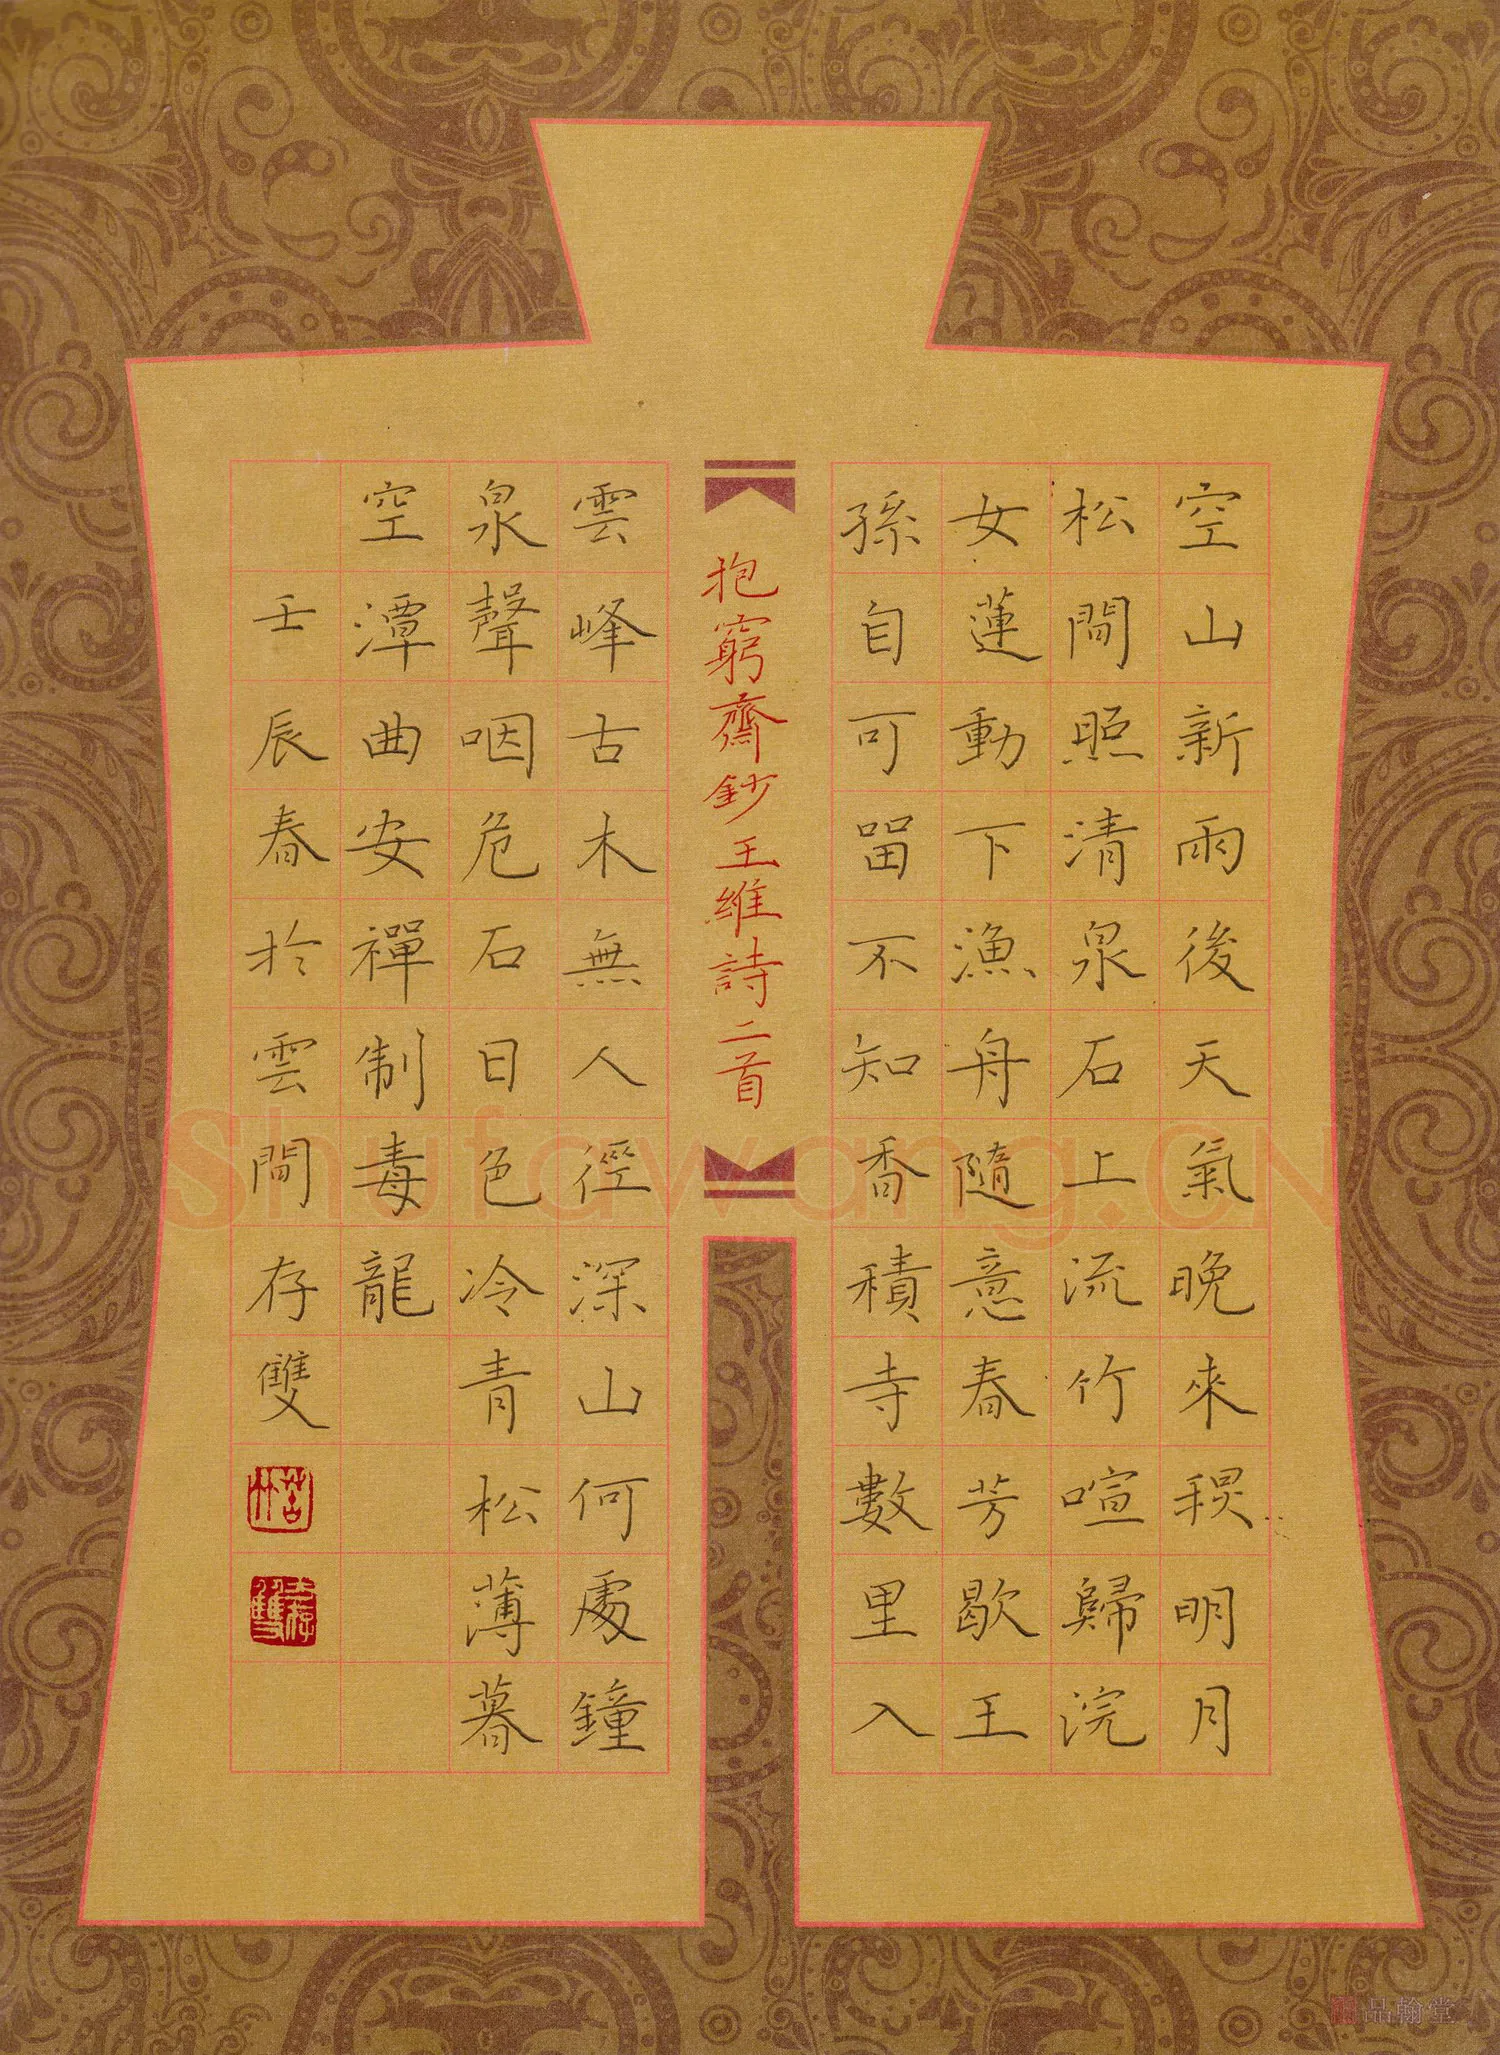 空山新雨後天氣晚來秋明月
松間照清泉石上流竹喧歸浣
女蓮動下漁舟隨意春芳歇王
孫自可留不知香積寺數里入
抱窮齋鈔王維詩二首
雲峰古木無人徑深山何處鐘
泉聲咽危石日色冷青松薄暮
空潭曲安禪制毒龍
壬辰春於雲間存雙
Shufawang.CN
品翰堂